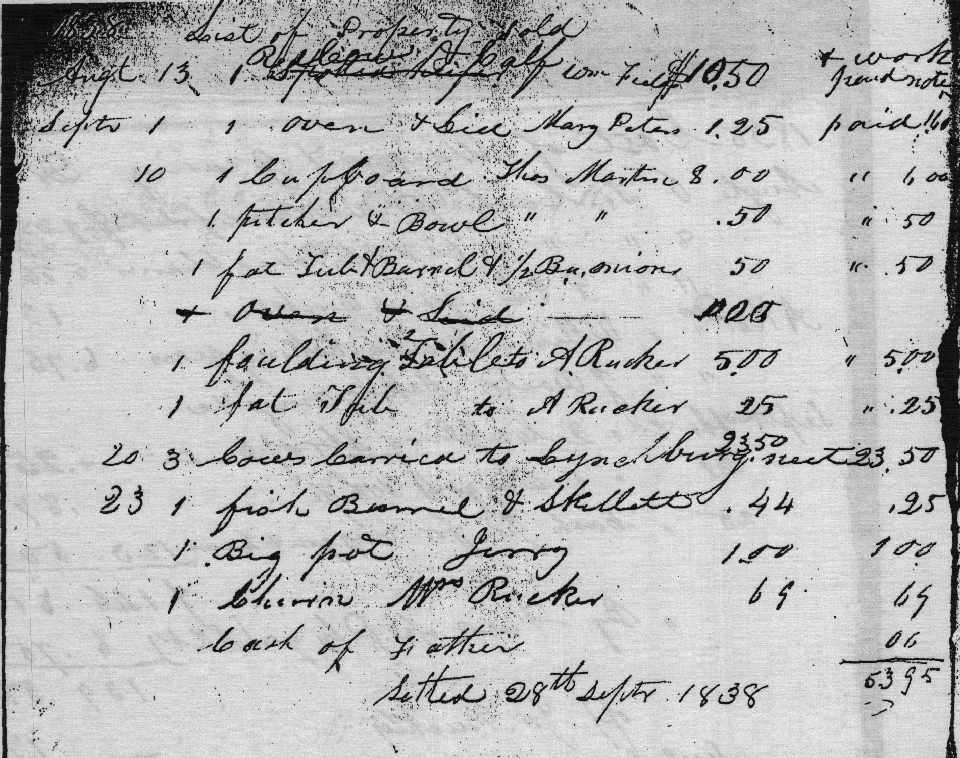 1838 List of Property Sold
Red Cow & Calf + work
Augt 13 1 Spotted heifer Wm $10.50 note
Septr 1 1 oven & Lid Mary Peters 1.25 paid
10 1 Cupboard Thos Martin 8.00 "
1 pitcher & Bowl " " .50 " .50
1 fat Tub & Barrel & 1/2 Bu. onions 50 " .50
+ Oven & Lid
1 faulding Table to A Rucker 5.00 " 5.00
1 fat Tub to A Rucker 25 " .25
20 3 Cows Carried to Lynchburg 23.50 neet 23.50
23 1 fish Barrel & Skellett .44 .25
1 Big pot Jerry 1.00 1 00
1 Churn Mrs Rucker 69 69
Cash of Father 06
Setted 28th Septr 1838 53 95